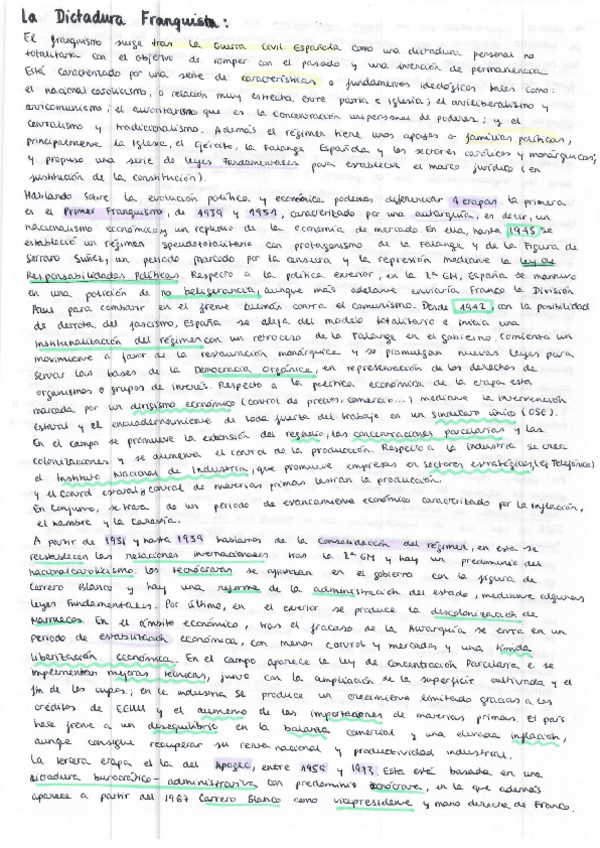 La Dictadura Franquista:
El franquismo surge tras la Guerra Civil Española como una dictadura personal no
totalitaria con el objetivo de romper con el pasado y una intención de permanencia
Está caracterizado por una serie de características o fundamentos ideológicos tales como:
el nacional catolicismo, o relación muy estrecha entre patria e Iglesia; el antiliberalismo y
anticomunismo; el autoritarismo que es la concentración unipersonal de poderes; y el
centralismo y tradicionalismo. Además el régimen tiene unos apoyos o familias políticas,
principalmente la Iglesia, el Ejército, la Falange Española y los sectores católicos y monárquicos;
y propuso una serie de leyes Fundamentales para establecer el marco jurídico (en
sustitución de la constitución).
Hablando sobre la evolución política y económica podemos diferenciar 4 etapas. La primera
es el Primer Franquismo, de 1939 y 1951, caracterizado por una autarquía, es decir, un
nacionalismo económico, y un repudio de la economía de mercado. En ella, hasta 1945 se
estableció un régimen con protagonismo de la Falange y de la figura de
Serrano Suñer, un período marcado por la censura y la represión mediante la ley de
Responsabilidades Políticas. Respecto a la política exterior, en la 2ª GM, España se mantuvo
en una posición de no beligerancia, aunque más adelante enviaría Franco la División
Azul para combatir en el frente alemán contra el comunismo. Desde 1942, con la posibilidad
de derrota del fascismo, España se aleja del modelo totalitario e inicia una
institucionalización del régimen con un retroceso de la Falange en el gobierno. Comienza un
movimiento a favor de la restauración monárquica y se promulgan nuevas leyes para
servir las bases de la Democracia orgánica, en representación de los derechos de
organismos o grupos de interés. Respecto a la política económica de la etapa esta
marcada por un dirigismo económico (control de precios, comercio...) mediante la intervención
estatal y el encuadernamiento de toda fuerza del trabajo en un sindicato único (OSE).
En el campo se promueve la extensión del regadío, las concentraciones parcelarias y las
colonizaciones y se aumenta el control de la producción. Respecto a la industria se crea
el Instituto Nacional de Industria, que promueve empresas en sectores estratégicos, (ej Telefónica)
y el control estatal y control de materias primas lastran la producción.
En conjunto, se trata de un período de estancamiento económico caracterizado por la inflación,
el hambre y la carestía.
A partir de 1951 y hasta 1959 hablamos de la consolidación del régimen, en esta se
reestablecen las relaciones internacionales tras la 2ª GM y hay un predominio del
nacionalcatolicismo. Los tecnócratas se afianzan en el gobierno con la figura de
Carrero Blanco y hay una reforma de la administración del estado, mediante algunas
leyes Fundamentales. Por último, en el exterior se produce la descolonización de
Marruecos. En el ámbito económico, tras el fracaso de la Autarquía se entra en un
período de estabilización económica, con menos control y mercados y una tímida
liberalización económica. En el campo aparece la ley de Concentración Parcelaria e se
implementan mejoras técnicas, junto con la ampliación de la superficie cultivada y el
fin de los cupos; en la industria se produce un crecimiento limitado gracias a los
créditos de EEUU y el aumento de las importaciones de materias primas. El país
hace frente a un desequilibrio en la balanza comercial y una elevada inflación,
aunque consigue recuperar su renta nacional y productividad industrial.
La tercera etapa es la del Apogeo, entre 1959 y 1973. Esta está basada en una
dictadura burocrático-administrativa con predominio tecnócrata, en la que además
aparece a partir del 1967 Carrero Blanco como vicepresidente y mano derecha de Franco.